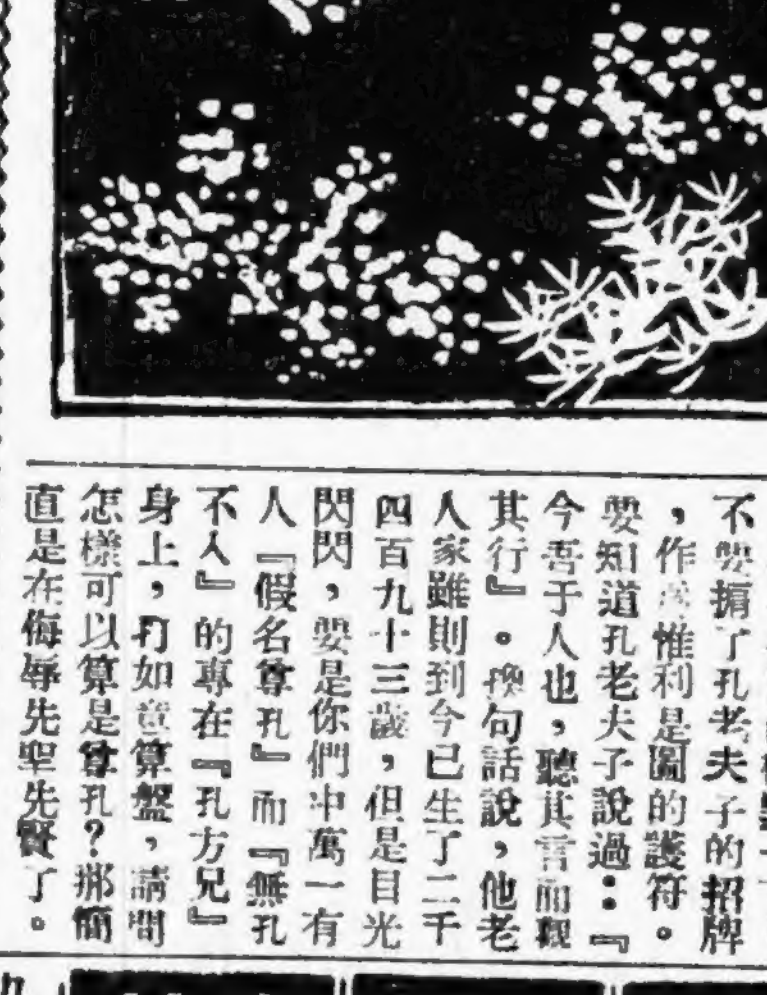 不要掮了孔老夫子的招牌
，作為惟利是圖的護符。
要知道孔老夫子說過：『
今吾于人也，聽其言而觀
其行』。換句話說，他老
人家雖則到今已生了二千
四百九十三歲，但是目光
閃閃，要是你們中萬一有
人『假名尊孔』而『無孔
不入』的專在『孔方兄』
身上，打如意算盤，請問
怎樣可以算是尊孔？那簡
直是在侮辱先聖先賢了。